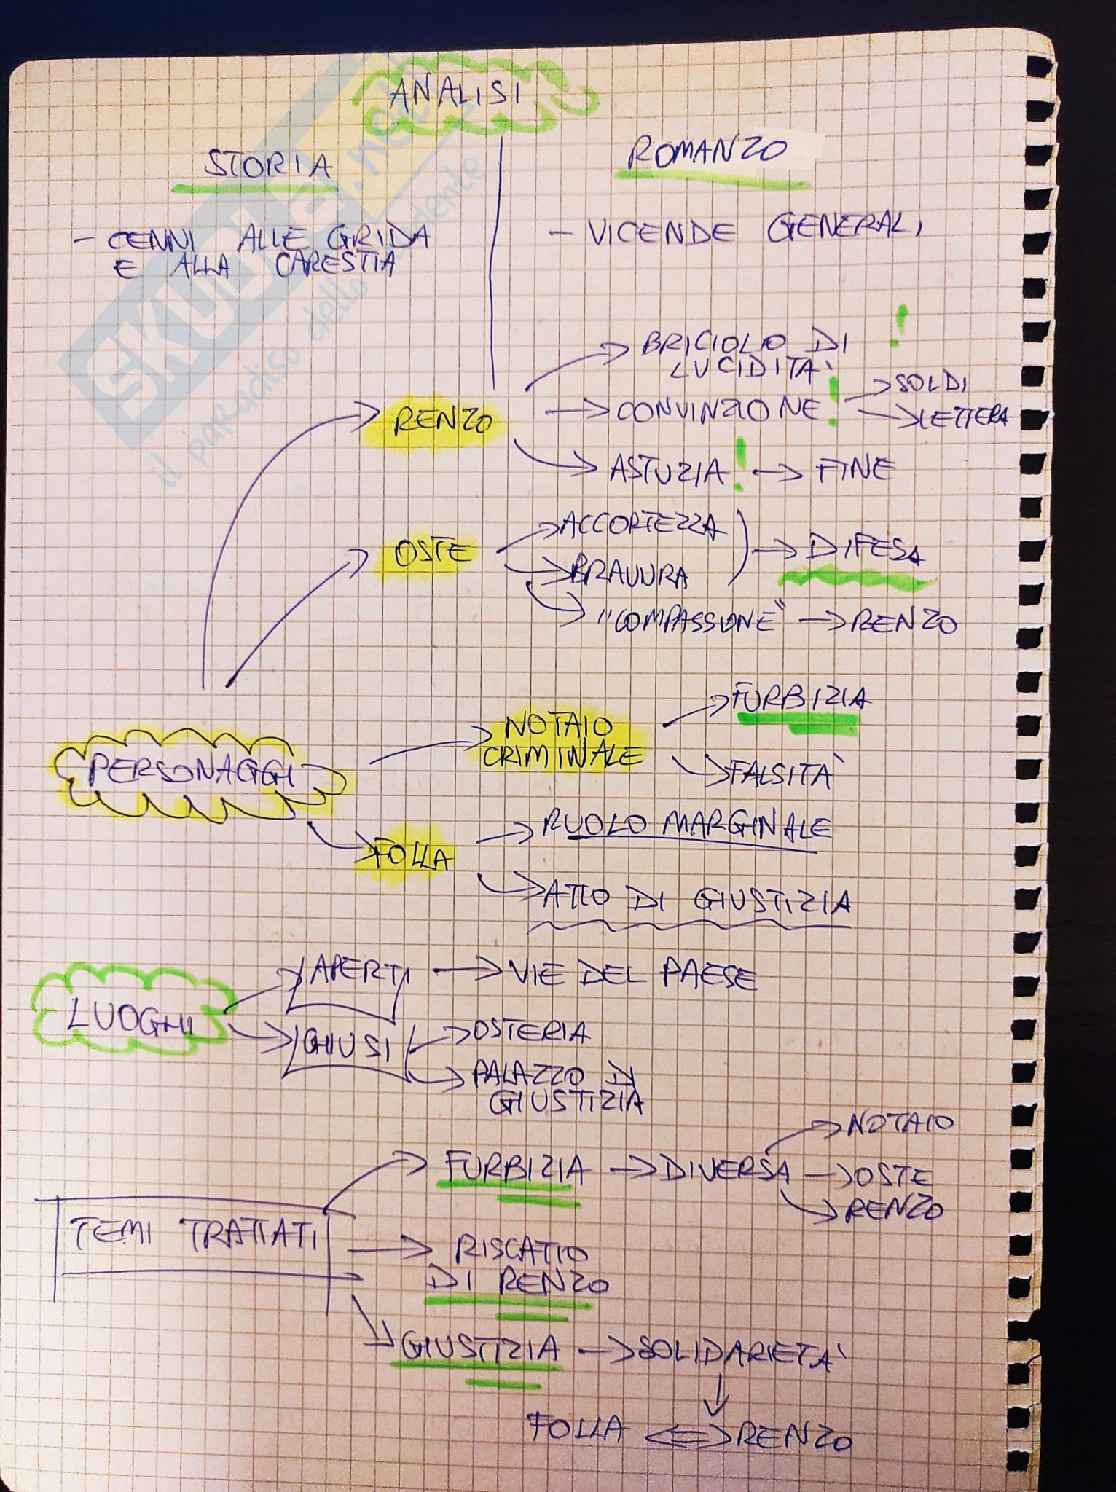 ANALISI
STORIA
ROMANZO
- CENNI ALLE GRIDA
E ALLA CARESTIA
- VICENDE GENERALI
RENZO
BRICIOLO DI
LUCIDITÀ !
CONVINZIONE !
SOLDI
LETTERA
ASTUZIA ! → FINE
OSTE
ACCORTEZZA
BRAVURA
→ DIFESA
"COMPASSIONE" → RENZO
PERSONAGGI
NOTAIO
CRIMINALE
FURBIZIA
FALSITÀ
FOLLA
RUOLO MARGINALE
ATTO DI GIUSTIZIA
LUOGHI
APERTI → VIE DEL PAESE
CHIUSI
OSTERIA
PALAZZO DI
GIUSTIZIA
TEMI TRATTATI
FURBIZIA → DIVERSA
NOTAIO
OSTE
RENZO
RISCATTO
DI RENZO
GIUSTIZIA → SOLIDARIETÀ
FOLLA ⟺ RENZO
SKUOLA.net
il paradiso dello studente